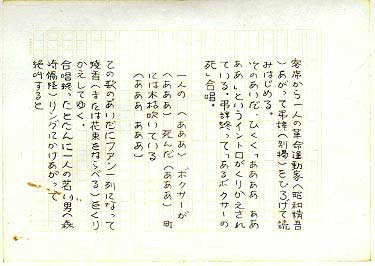 客席から一人の革命運動家(昭和精吾
)あがって弔辞(別掲)をひろげて読
みはじめる。
そのあいだ、ひくく「ああああ　ああ
ああ」というイントロがくりかえされ
ている。弔辞終って「あるボクサーの
死」合唱。
一人の(あああ)ボクサーが
(ああああ)死んだ(ああああ)町
には木枯吹いている
(あああ　あああ)
この歌のあいだにファン一列になって
焼香(または花束をならべる)をくり
かえしてゆく。
合唱終ったとたんに一人の若い男(森
崎偏陸)リングにかけあがって
絶叫すると